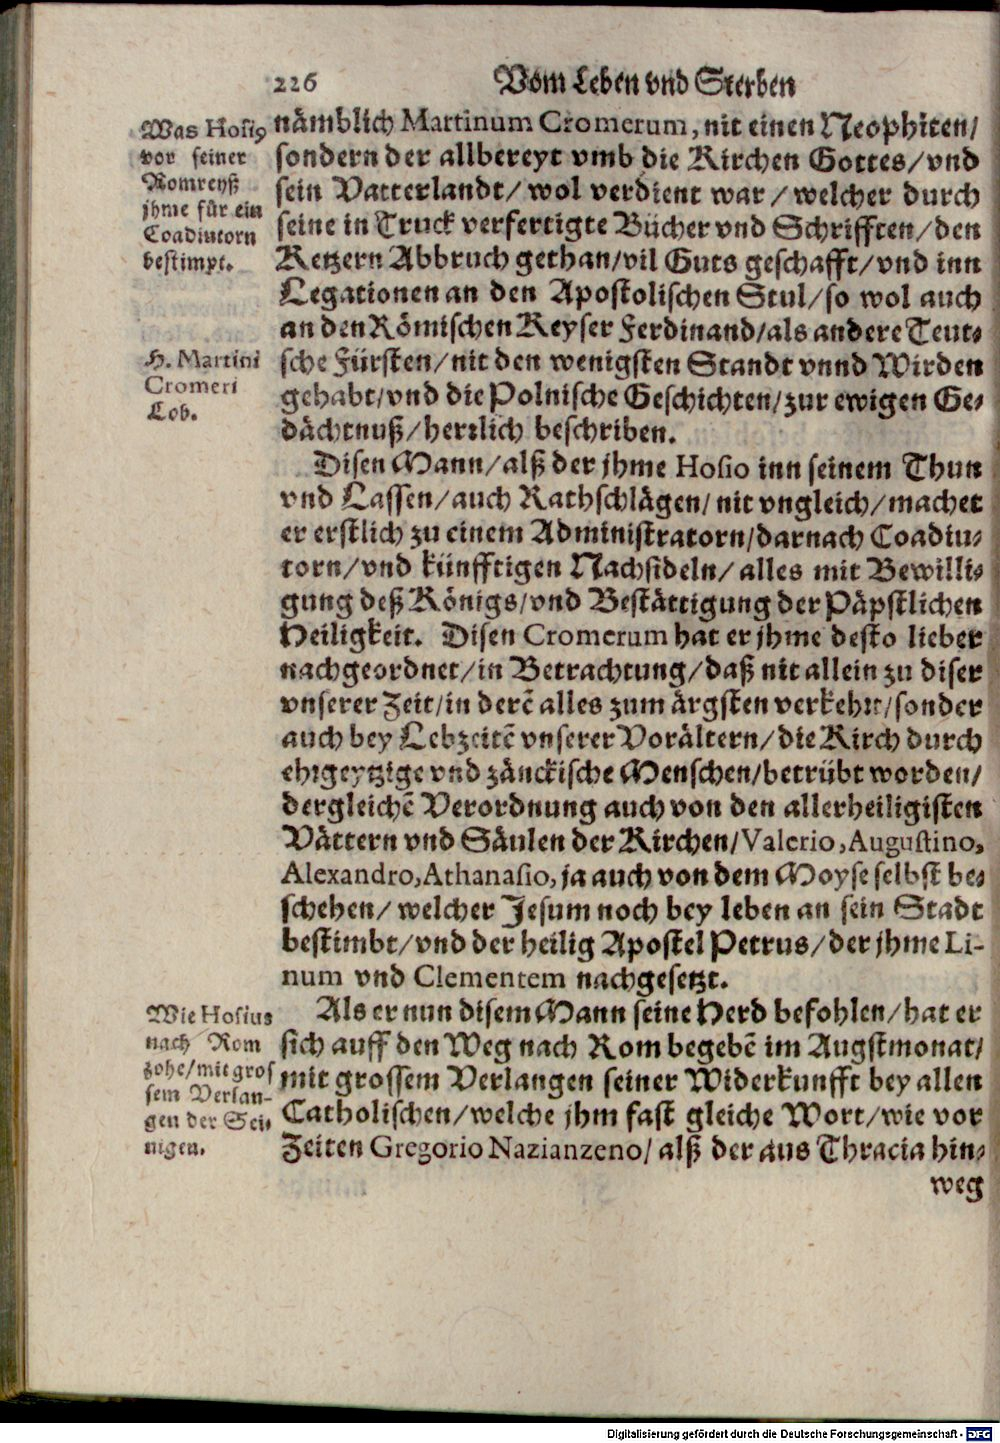 226
Vom Leben vnd Sterben
Was Hosiꝰ
vor seiner
Romreyß
jhme für ein
Coadiutorn
bestimpt.
nämblich Martinum Cromerum, nit einen Neophiten/
sondern der allbereyt vmb die Kirchen Gottes/ vnd
sein Vatterlandt/ wol verdient war/ welcher durch
seine in Truck verfertigte Bücher vnd Schrifften/ den
Ketzern Abbruch gethan/ vil Guts geschafft/ vnd inn
Legationen an den Apostolischen Stul/ so wol auch
an den Römischen Keyser Ferdinand/ als andere Teut-
H. Martini
Cromeri
Lob.
sche Fürsten/ nit den wenigsten Standt vnnd Wirden
gehabt/ vnd die Polnische Geschichten/ zur ewigen Ge-
dächtnuß/ herꝛlich beschriben.
Disen Mann/ alß der jhme Hosio inn seinem Thun
vnd Lassen/ auch Rathschlägen/ nit vngleich/ machet
er erstlich zu einem Administratorn/ darnach Coadiu-
torn/ vnd künfftigen Nachsideln/ alles mit Bewilli-
gung deß Königs/ vnd Bestättigung der Päpstlichen
Heiligkeit. Disen Cromerum hat er jhme desto lieber
nachgeordnet/ in Betrachtung/ daß nit allein zu diser
vnserer Zeit/ in derẽ alles zum ärgsten verkehrt/ sonder
auch bey Lebzeitẽ vnserer Vorältern/ die Kirch durch
ehrgeytzige vnd zänckische Menschen/ betrübt worden/
dergleichẽ Verordnung auch von den allerheiligisten
Vättern vnd Säulen der Kirchen/ Valerio, Augustino,
Alexandro, Athanasio, ja auch von dem Moyse selbst be-
schehen/ welcher Jesum noch bey leben an sein Stadt
bestimbt/ vnd der heilig Apostel Petrus/ der jhme Li-
num vnd Clementem nachgesetzt.
Wie Hosius
nach Rom
zohe/ mit gros
sem Verlan-
gen der Sei-
nigen.
Als er nun disem Mann seine Herd befohlen/ hat er
sich auff den Weg nach Rom begebẽ im Augstmonat/
mit grossem Verlangen seiner Widerkunfft bey allen
Catholischen/ welche jhm fast gleiche Wort/ wie vor
Zeiten Gregorio Nazianzeno/ alß der aus Thracia hin-
weg
Digitalisierung gefördert durch die Deutsche Forschungsgemeinschaft - DFG